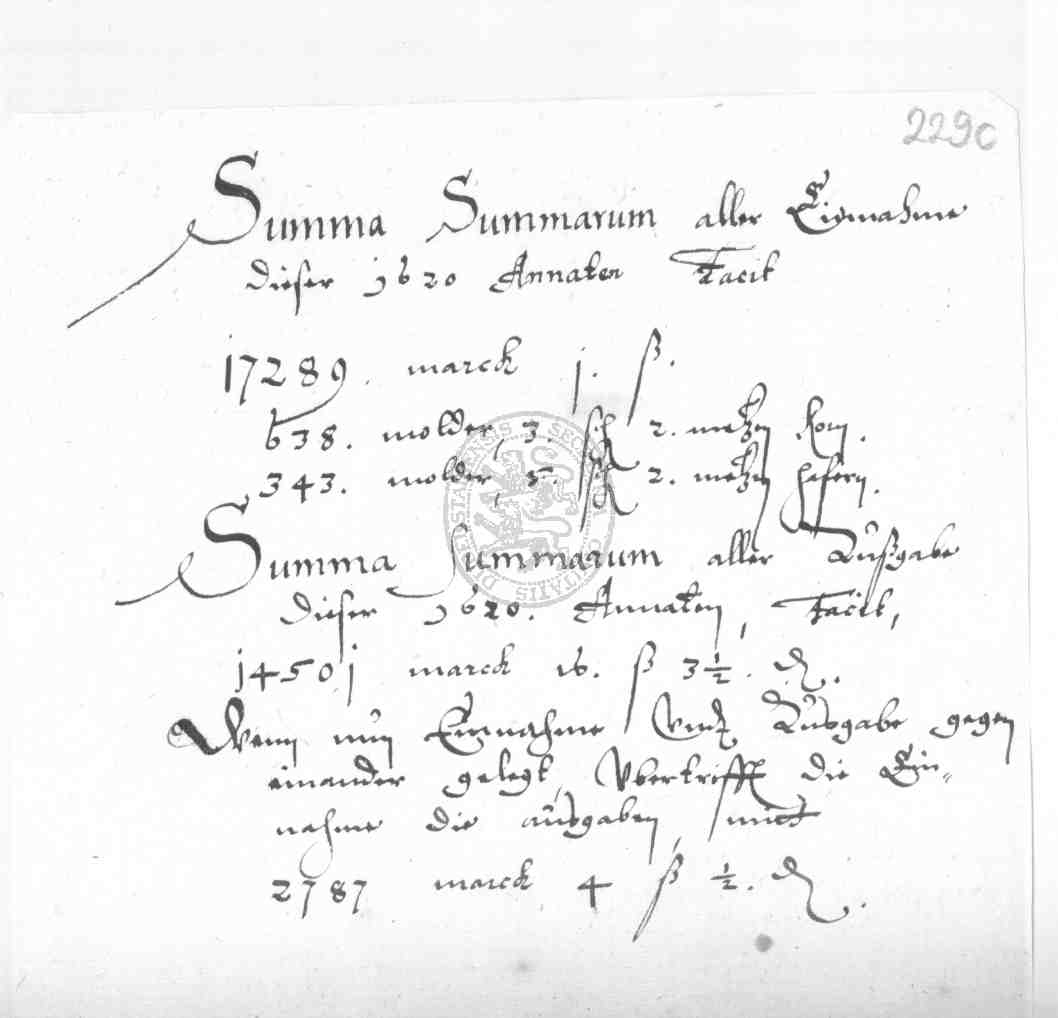 2290
Summa Summarum aller Einnahme
dieser 1620 Annaten Facit
17289. marck j. ß.
638. molder, 3. sch 2. metzen Korn.
343. molder, 5. sch 2. metzen hafern.
Summa Summarum aller Außgabe
dieser 1620. Annaten, Facit,
14501 marck 16. ß 3½. d.
Wenn nun Einnahme Vnd Ausgabe gegen
einander gelegt, Vbertrifft die Ein-
nahme die ausgaben, mitt
2787 marck 4 ß ½. d.